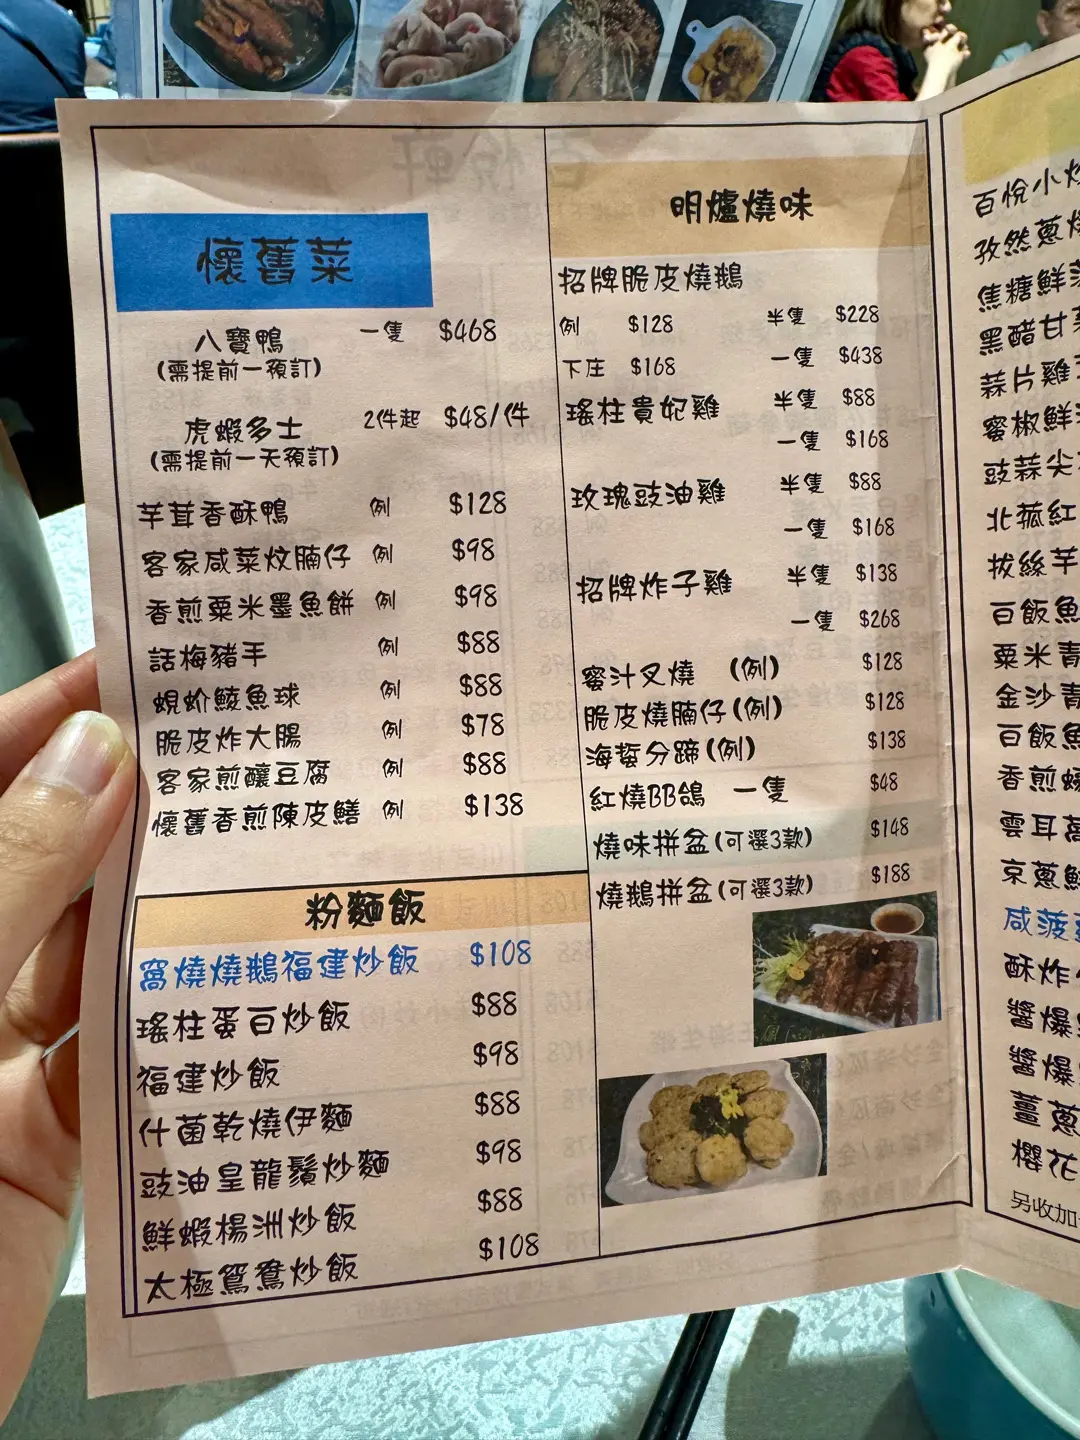 懷舊菜
八寶鴨 一隻 $468
(需提前一預訂)
虎蝦多士 2件起 $48/件
(需提前一天預訂)
芋茸香酥鴨 例 $128
客家咸菜炆腩仔 例 $98
香煎粟米墨魚餅 例 $98
話梅豬手 例 $88
蜆蚧鯪魚球 例 $88
脆皮炸大腸 例 $78
客家煎釀豆腐 例 $88
懷舊香煎陳皮鱔 例 $138
粉麵飯
窩燒燒鵝福建炒飯 $108
瑤柱蛋白炒飯 $88
福建炒飯 $98
什菌乾燒伊麵 $88
豉油皇龍鬚炒麵 $98
鮮蝦楊洲炒飯 $88
太極鴛鴦炒飯 $108
明爐燒味
招牌脆皮燒鵝
例 $128 半隻 $228
下庄 $168 一隻 $438
瑤柱貴妃雞 半隻 $88
一隻 $168
玫瑰豉油雞 半隻 $88
一隻 $168
招牌炸子雞 半隻 $138
一隻 $268
蜜汁叉燒 (例) $128
脆皮燒腩仔(例) $128
海蜇分蹄(例) $138
紅燒BB鴿 一隻 $48
燒味拼盆(可選3款) $148
燒鵝拼盆(可選3款) $188
百悅小炒
孜然蔥燒
焦糖鮮
黑醋甘
蒜片雞
蜜椒鮮
豉蒜尖
北菰紅
拔絲芋
百飯魚
粟米青
金沙青
百飯魚
香煎
雲耳
京蔥鮮
咸菠
酥炸
醬爆
醬爆
薑蔥
櫻花
另收加